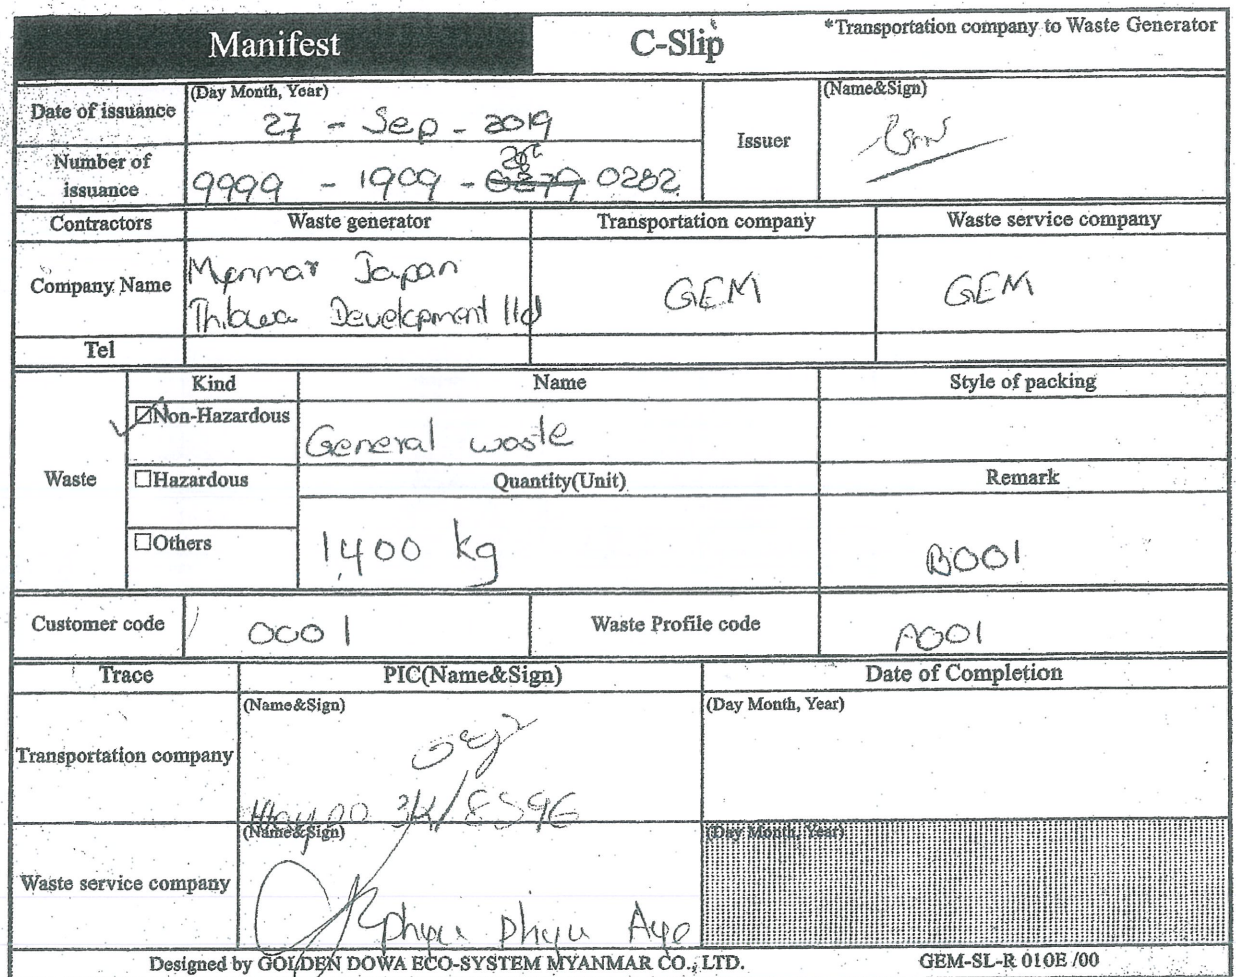 Manifest
C-Slip
*Transportation company to Waste Generator
Date of issuance
(Day Month, Year)
27 - Sep - 2019
Issuer
(Name&Sign)
Number of
issuance
9999 - 1909 - 0279 0282
Contractors
Waste generator
Transportation company
Waste service company
Company Name
Myanmar Japan
Thilawa Development ltd
GEM
GEM
Tel
Waste
Kind
Name
Style of packing
☑Non-Hazardous
General waste
☐Hazardous
Quantity(Unit)
Remark
☐Others
1,400 kg
B001
Customer code
0001
Waste Profile code
A001
Trace
PIC(Name&Sign)
Date of Completion
Transportation company
(Name&Sign)
(Day Month, Year)
Waste service company
(Name&Sign)
(Day Month, Year)
phyu phyu Aye
Designed by GOLDEN DOWA ECO-SYSTEM MYANMAR CO., LTD.
GEM-SL-R 010E /00